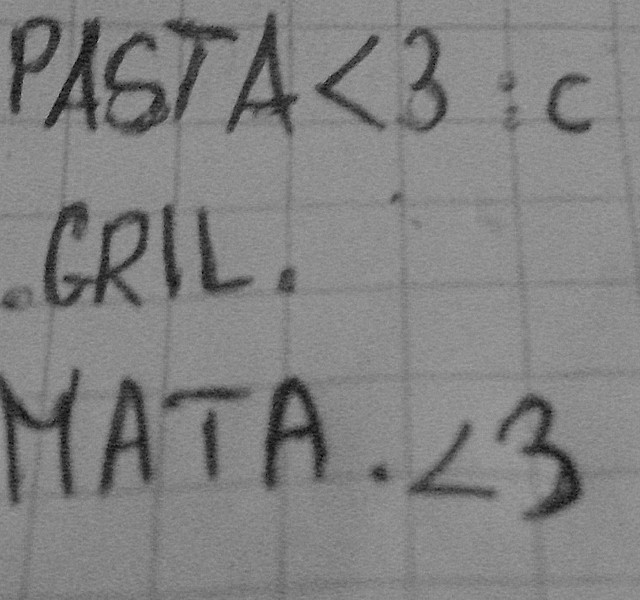 PASTA<3 :c
.GRIL.
MATA.<3